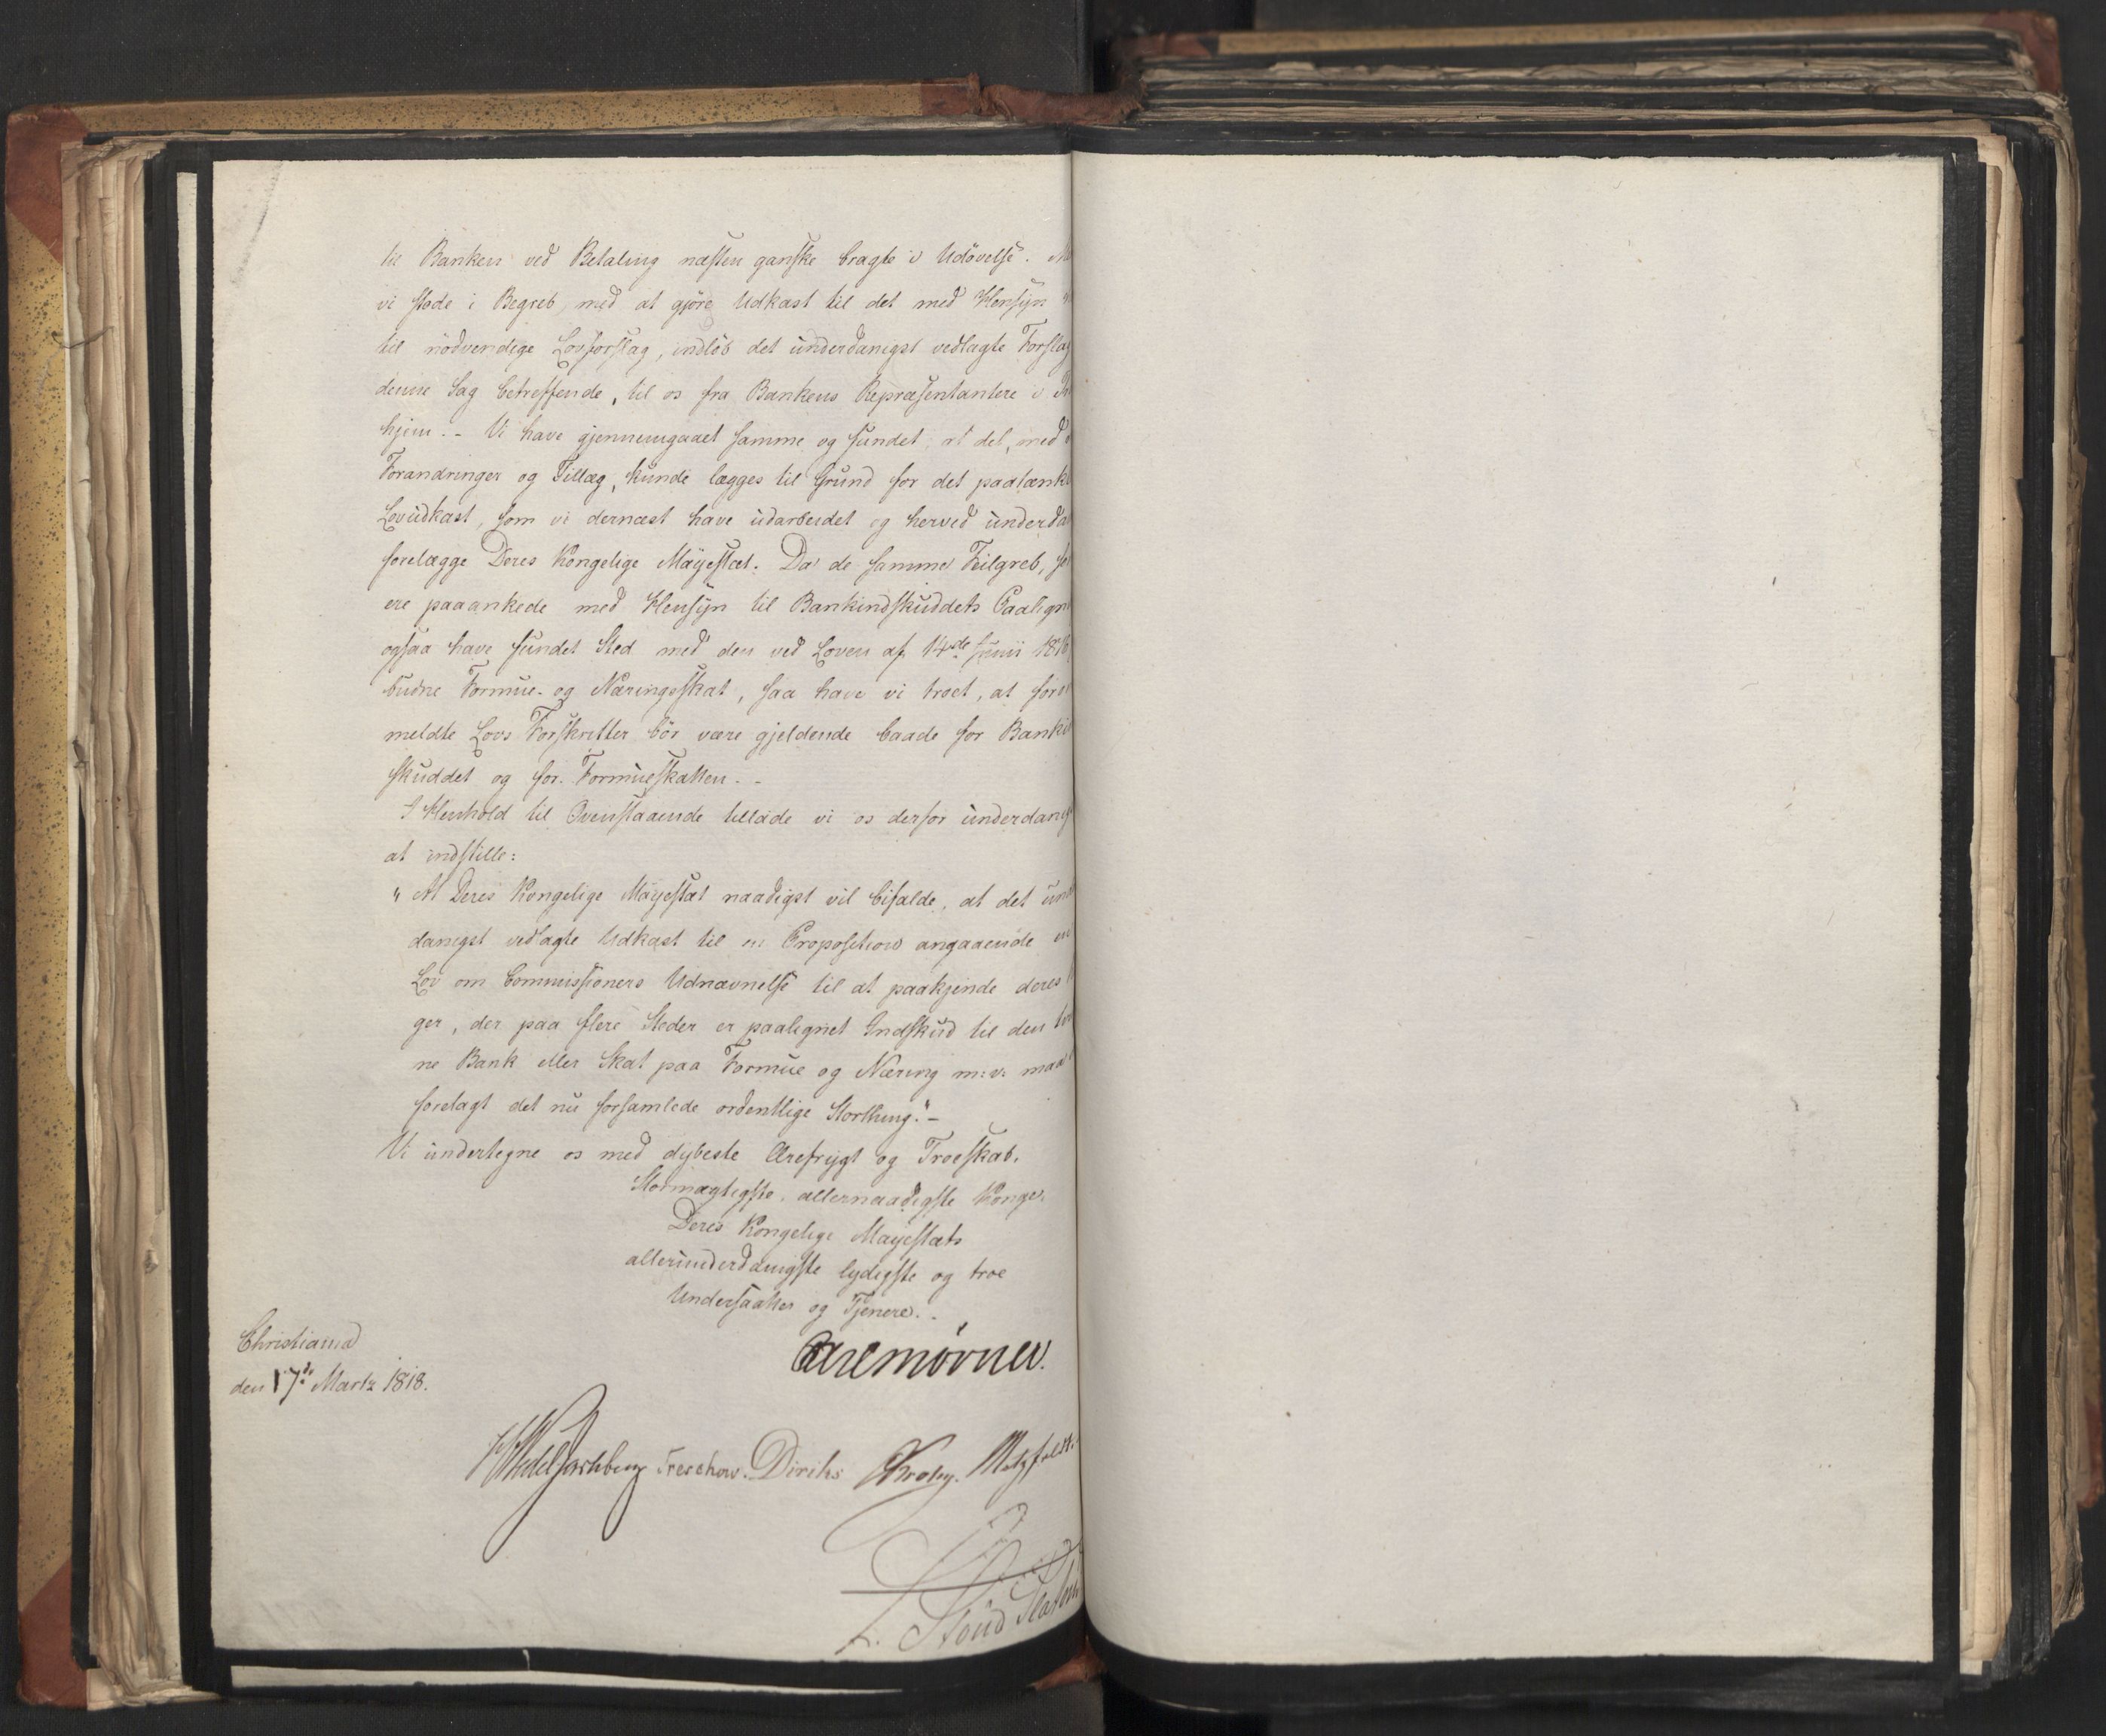 til Banken ved Betaling næsten ganske bragte i Udövelse.
vi stode i Begreb med at gjöre Udkast til det med Hensyn
til nödvendige Lovforslag, indlöb det underdanigst vedlagte Forslag
denne Sag betreffende, til os fra Bankens Repræsentantere i
hjem. - Vi have gjennemgaaet samme og fundet, at det, med
Forandringer og Tillæg, kunde lægges til Grund for det paatænk
Lovudkast, som vi dernæst have udarbeidet og herved underda
forelægge Deres Kongelige Mayestæt. Da de samme Feilgreb, so
ere paaankede med Hensyn til Bankindskuddets Paalign
ogsaa have fundet Sted med den ved Loven af 14de Junii 1816
budne Formue- og Næringsskat, saa have vi troet, at for
meldte Lovs Forskrifter bör være gjeldende baade for Banki
skuddet og for Formueskatten. -
I Henhold til Ovenstaaende tillade vi os derfor underdanig
at indstille:
"At Deres Kongelige Mayestæt naadigst vil bifalde, at det und
danigst vedlagte Udkast til en Proposition angaaende en
Lov om Commissioners Udnævnelse til at paakjende deres
ger, der paa flere Steder er paalignet Indskud til den
ne Bank eller Skat paa Formue og Næring m: v: maa
forelagt det nu forsamlede ordentlige Storthing." -
Vi undertegne os med dybeste Ærefrygt og Troeskab.
Stormægtigste, allernaadigste Konge.
Deres Kongelige Mayestæts
allerunderdanigste lydigste og troe
Undersaatter og Tjenere. -
Christiania
den 17de Martz 1818.
Carl Mörner.
HWedelJarlsberg Treschow. Diriks Krohg. Motzfeldt.
L. Stoud Platou